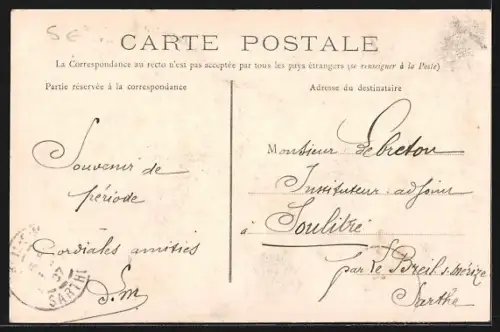 5€
CARTE POSTALE
La Correspondance au recto n'est pas acceptée par tous les pays étrangers (se renseigner à la Poste)
Partie réservée à la correspondance
Adresse du destinataire
Souvenir de
période
Cordiales amitiés
S.m
Monsieur Lebreton
Instituteur adjoint
à Soulitré
par le Breil s. mérize
Sarthe
07
SARTHE